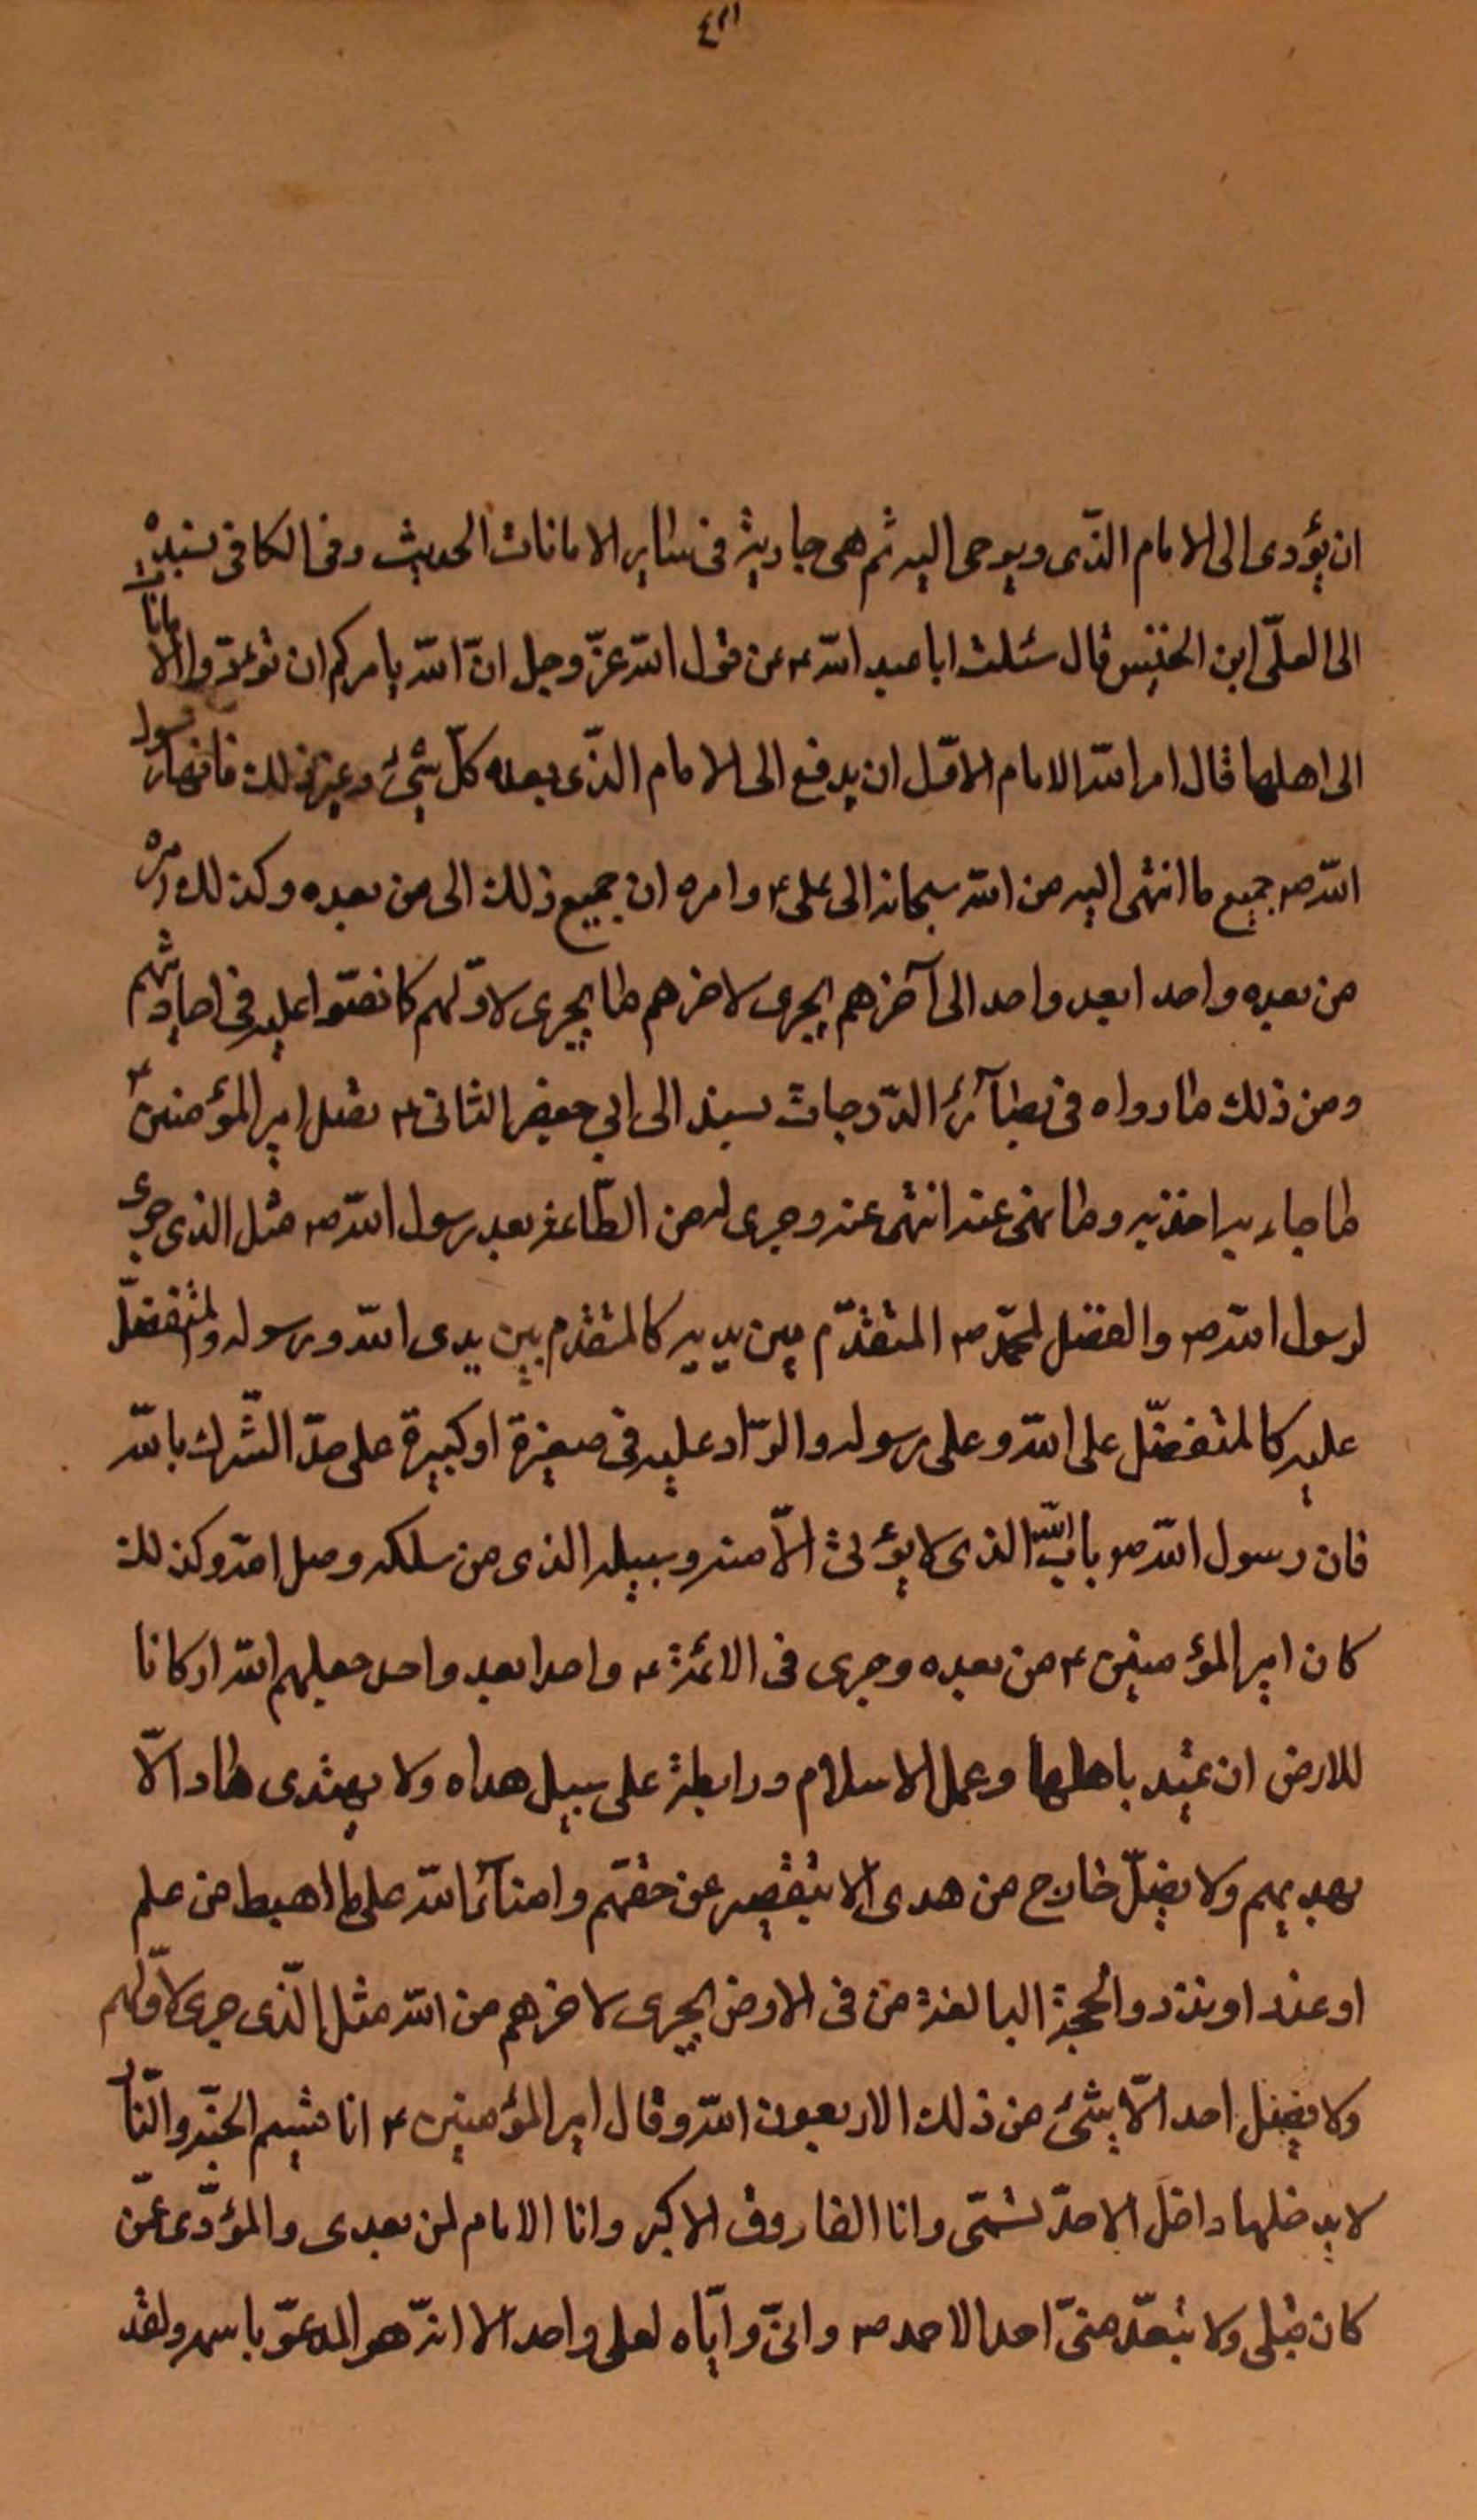 ٤٢١
ان يؤدى الى الامام الذى ويوحى اليه ثم هى جارية فى ساير الامانات الحديث وفى الكافى بسنده
الى المعلّى ابن الخنيس قال سئلت ابا عبد الله ع عن قول الله عزّ وجل انّ الله يامركم ان تؤدوا الامانات
الى اهلها قال امر الله الامام الاوّل ان يدفع الى الامام الذى بعده كلّ شيئ وغير ذلك رسول
الله ص جميع ما انتهى اليه من الله سبحانه الى على ع وامره ان جميع ذلك الى من بعده وكذلك
من بعده واحدا بعد واحد الى آخرهم يجرى لاخرهم ما يجرى لاوّلهم كما نصّوا عليه فى احاديثهم
ومن ذلك ما رواه فى بصآئر الدّرجات بسنده الى ابي جعفر الثانى ع فضل امير المؤمنين ع
ما جاء به اخذ به وما نهى عنه انتهى عنه وجرى له من الطّاعة بعد رسول الله ص مثل الذى جرى
لرسول الله ص والفضل لمحمّد ص المتقدّم بين يديه كالمتقدم بين يدى الله ورسوله والمتفضّل
عليه كالمتفضّل على الله وعلى رسوله والرّاد عليه فى صغيرة او كبيرة على حدّ الشّرك بالله
فان رسول الله ص باب الله الذى لا يؤتى الّا منه وسبيله الذى من سلكه وصل الله وكذلك
كان امير المؤمنين ع من بعده وجرى فى الائمّة ع واحدا بعد واحد جعلهم الله اركانا
للارض ان تميد باهلها وعمد الاسلام ورابطة على سبيل هداه ولا يهتدى هاد الّا
بهديهم ولا يضلّ خارج من هدى الّا بتقصير عن حقّهم وامنآء الله على ما اهبط من علم
او عذر او نذر والحجة البالغة من فى الارض يجرى لاخرهم من الله مثل الّذى جرى لاوّلهم
ولا يصل احد الّا بشئ من ذلك الا بعون الله وقال امير المؤمنين ع انا قسيم الجنّة والنّار
لا يدخلها داخل الا حدّ قسمى وانا الفاروق الاكبر وانا الامام لمن بعدى والمؤدّى عمّن
كان قبلى ولا يتعدّ منىّ احد الا احمد ص وانىّ وايّاه لعلى واحد الا انّه هو المدعوّ باسمه ولقد